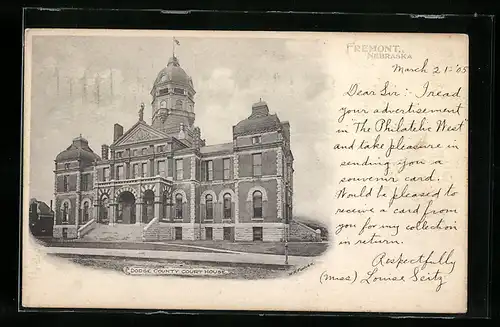 FREMONT,
NEBRASKA
March 21-'05
Dear Sir:- I read
your advertisement
in "The Philatelic West"
and take pleasure in
sending you a
souvenir card.
Would be pleased to
receive a card from
you for my collection
in return.
Respectfully
(Miss) Louise Seitz
DODGE COUNTY COURT HOUSE